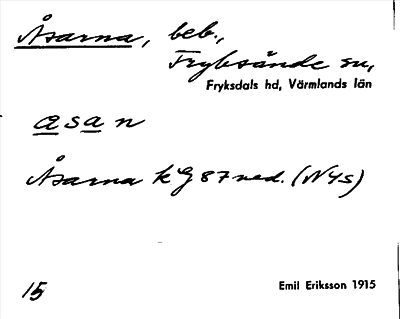 Åsarna, beb.,
Fryksände sn,
Fryksdals hd, Värmlands län
asan
Åsarna k G 87 ned. (NYS)
15
Emil Eriksson 1915